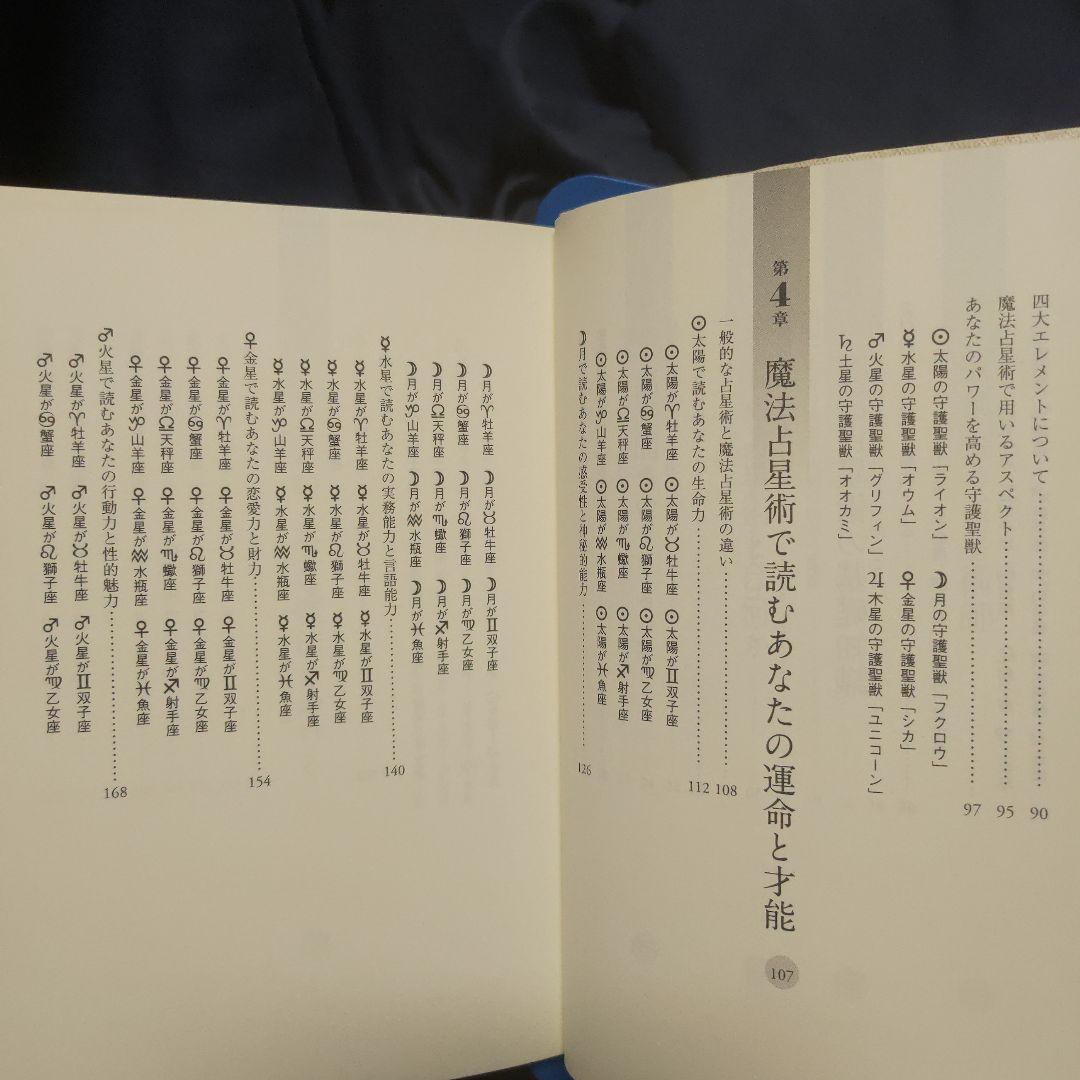 四大エレメントについて……………………90
魔法占星術で用いるアスペクト……………………95
あなたのパワーを高める守護聖獣……………………97
☉太陽の守護聖獣「ライオン」 ☽月の守護聖獣「フクロウ」
☿水星の守護聖獣「オウム」 ♀金星の守護聖獣「シカ」
♂火星の守護聖獣「グリフィン」 ♃木星の守護聖獣「ユニコーン」
♄土星の守護聖獣「オオカミ」
第4章 魔法占星術で読むあなたの運命と才能 107
一般的な占星術と魔法占星術の違い……………………108
☉太陽で読むあなたの生命力……………………112
☉太陽が♈牡羊座 ☉太陽が♉牡牛座 ☉太陽が♊双子座
☉太陽が♋蟹座 ☉太陽が♌獅子座 ☉太陽が♍乙女座
☉太陽が♎天秤座 ☉太陽が♏蠍座 ☉太陽が♐射手座
☉太陽が♑山羊座 ☉太陽が♒水瓶座 ☉太陽が♓魚座
☽月で読むあなたの感受性と神秘的能力……………………126
☽月が♈牡羊座 ☽月が♉牡牛座 ☽月が♊双子座
☽月が♋蟹座 ☽月が♌獅子座 ☽月が♍乙女座
☽月が♎天秤座 ☽月が♏蠍座 ☽月が♐射手座
☽月が♑山羊座 ☽月が♒水瓶座 ☽月が♓魚座
☿水星で読むあなたの実務能力と言語能力……………………140
☿水星が♈牡羊座 ☿水星が♉牡牛座 ☿水星が♊双子座
☿水星が♋蟹座 ☿水星が♌獅子座 ☿水星が♍乙女座
☿水星が♎天秤座 ☿水星が♏蠍座 ☿水星が♐射手座
☿水星が♑山羊座 ☿水星が♒水瓶座 ☿水星が♓魚座
♀金星で読むあなたの恋愛力と財力……………………154
♀金星が♈牡羊座 ♀金星が♉牡牛座 ♀金星が♊双子座
♀金星が♋蟹座 ♀金星が♌獅子座 ♀金星が♍乙女座
♀金星が♎天秤座 ♀金星が♏蠍座 ♀金星が♐射手座
♀金星が♑山羊座 ♀金星が♒水瓶座 ♀金星が♓魚座
♂火星で読むあなたの行動力と性的魅力……………………168
♂火星が♈牡羊座 ♂火星が♉牡牛座 ♂火星が♊双子座
♂火星が♋蟹座 ♂火星が♌獅子座 ♂火星が♍乙女座